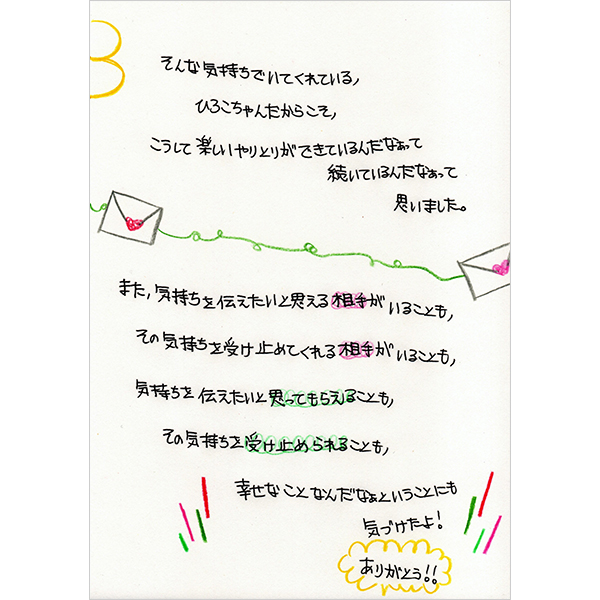 そんな気持ちでいてくれている,
ひろこちゃんだからこそ,
こうして楽しいやりとりができているんだなぁって
続いているんだなぁって
思いました。
また,気持ちを伝えたいと思える相手がいることも,
その気持ちを受け止めてくれる相手がいることも,
気持ちを伝えたいと思ってもらえることも,
その気持ちを受け止められることも,
幸せなことなんだなぁということにも
気づけたよ!
ありがとう!!